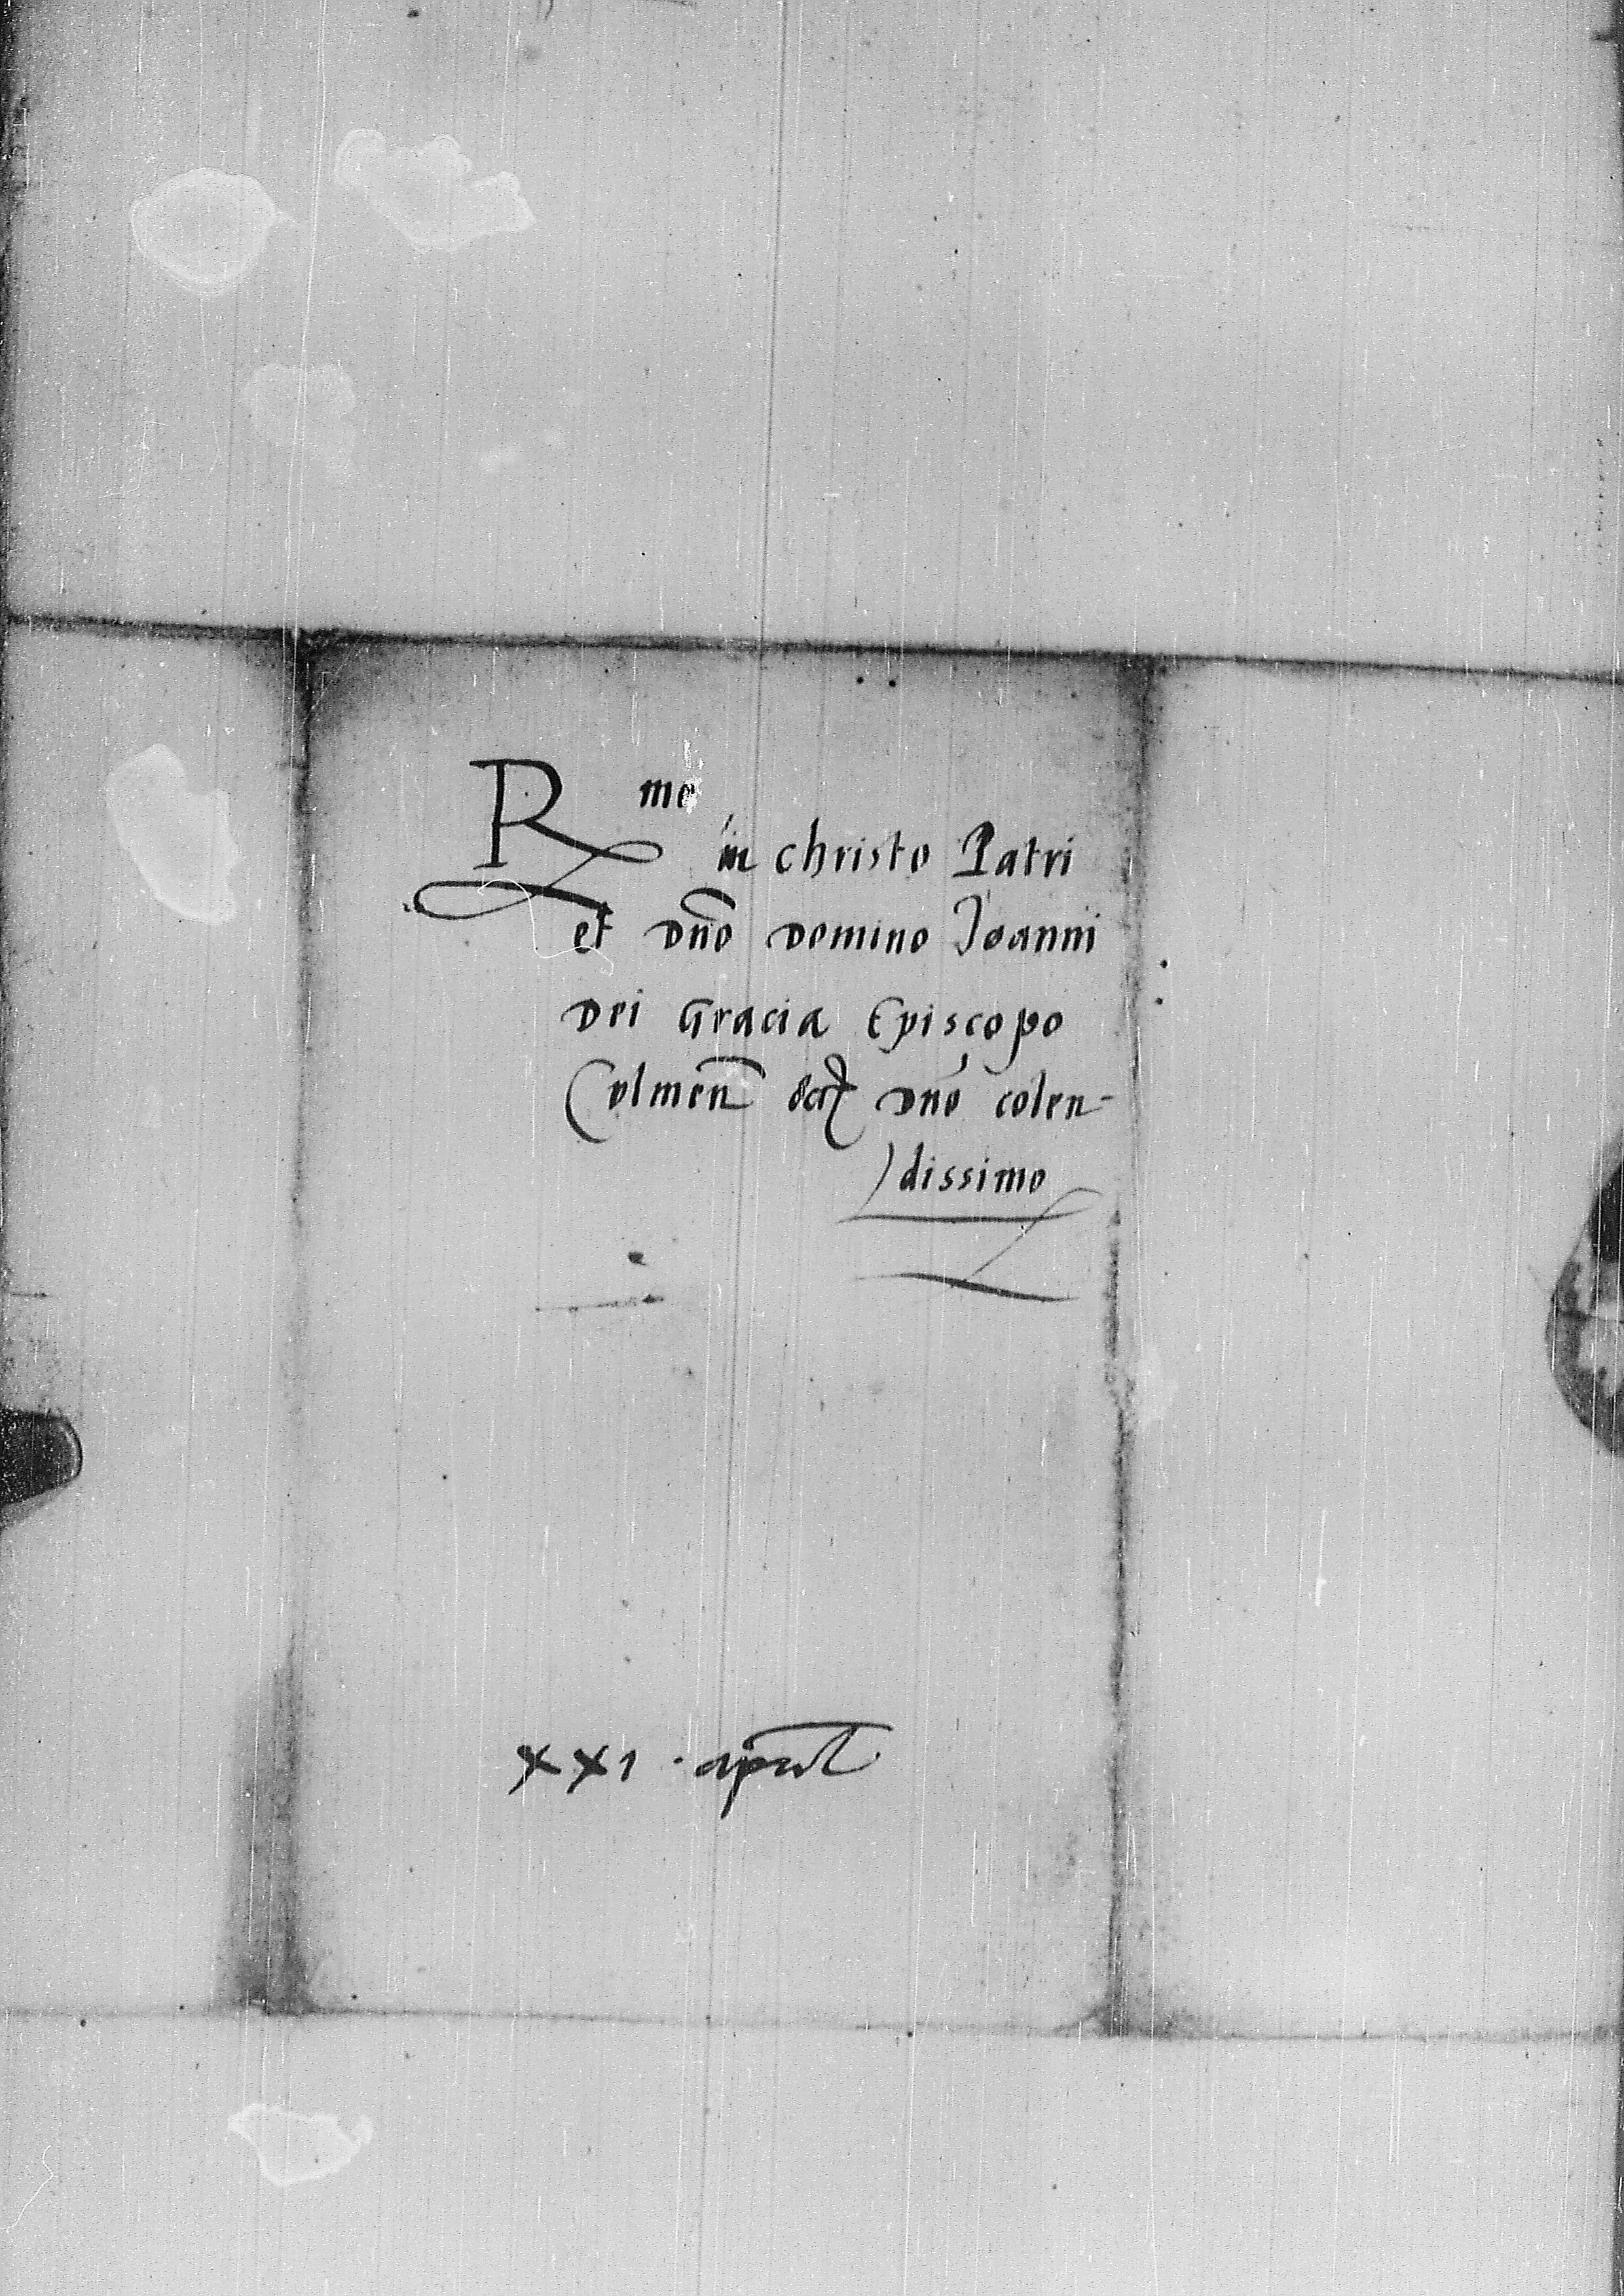 Rmo
in christo Patri
et dn̄o Domino Joanni
Dei Gracia Episcopo
Culmen̄ dn̄o colen-
dissimo
xxi · april